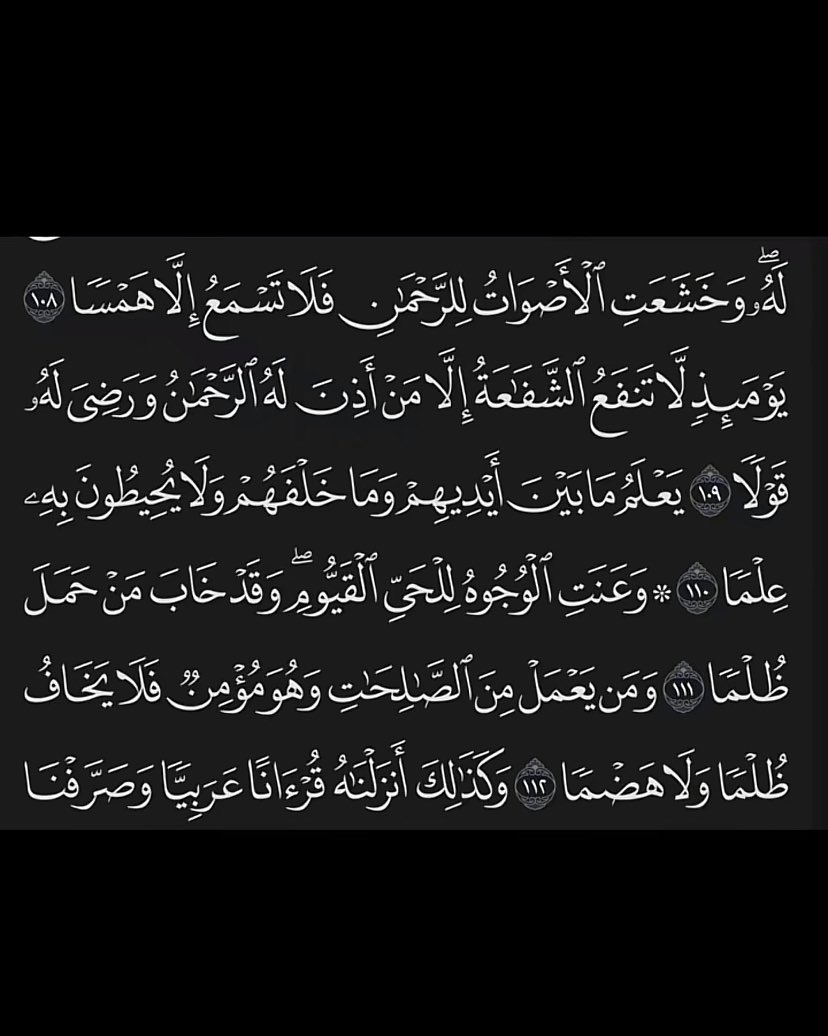 لَهُۥۖ وَخَشَعَتِ ٱلْأَصْوَاتُ لِلرَّحْمَـٰنِ فَلَا تَسْمَعُ إِلَّا هَمْسًا ١٠٨
يَوْمَئِذٍ لَّا تَنفَعُ ٱلشَّفَـٰعَةُ إِلَّا مَنْ أَذِنَ لَهُ ٱلرَّحْمَـٰنُ وَرَضِىَ لَهُۥ
قَوْلًا ١٠٩ يَعْلَمُ مَا بَيْنَ أَيْدِيهِمْ وَمَا خَلْفَهُمْ وَلَا يُحِيطُونَ بِهِۦ
عِلْمًا ١١٠ * وَعَنَتِ ٱلْوُجُوهُ لِلْحَىِّ ٱلْقَيُّومِۖ وَقَدْ خَابَ مَنْ حَمَلَ
ظُلْمًا ١١١ وَمَن يَعْمَلْ مِنَ ٱلصَّـٰلِحَـٰتِ وَهُوَ مُؤْمِنٌ فَلَا يَخَافُ
ظُلْمًا وَلَا هَضْمًا ١١٢ وَكَذَٰلِكَ أَنزَلْنَـٰهُ قُرْءَانًا عَرَبِيًّا وَصَرَّفْنَا